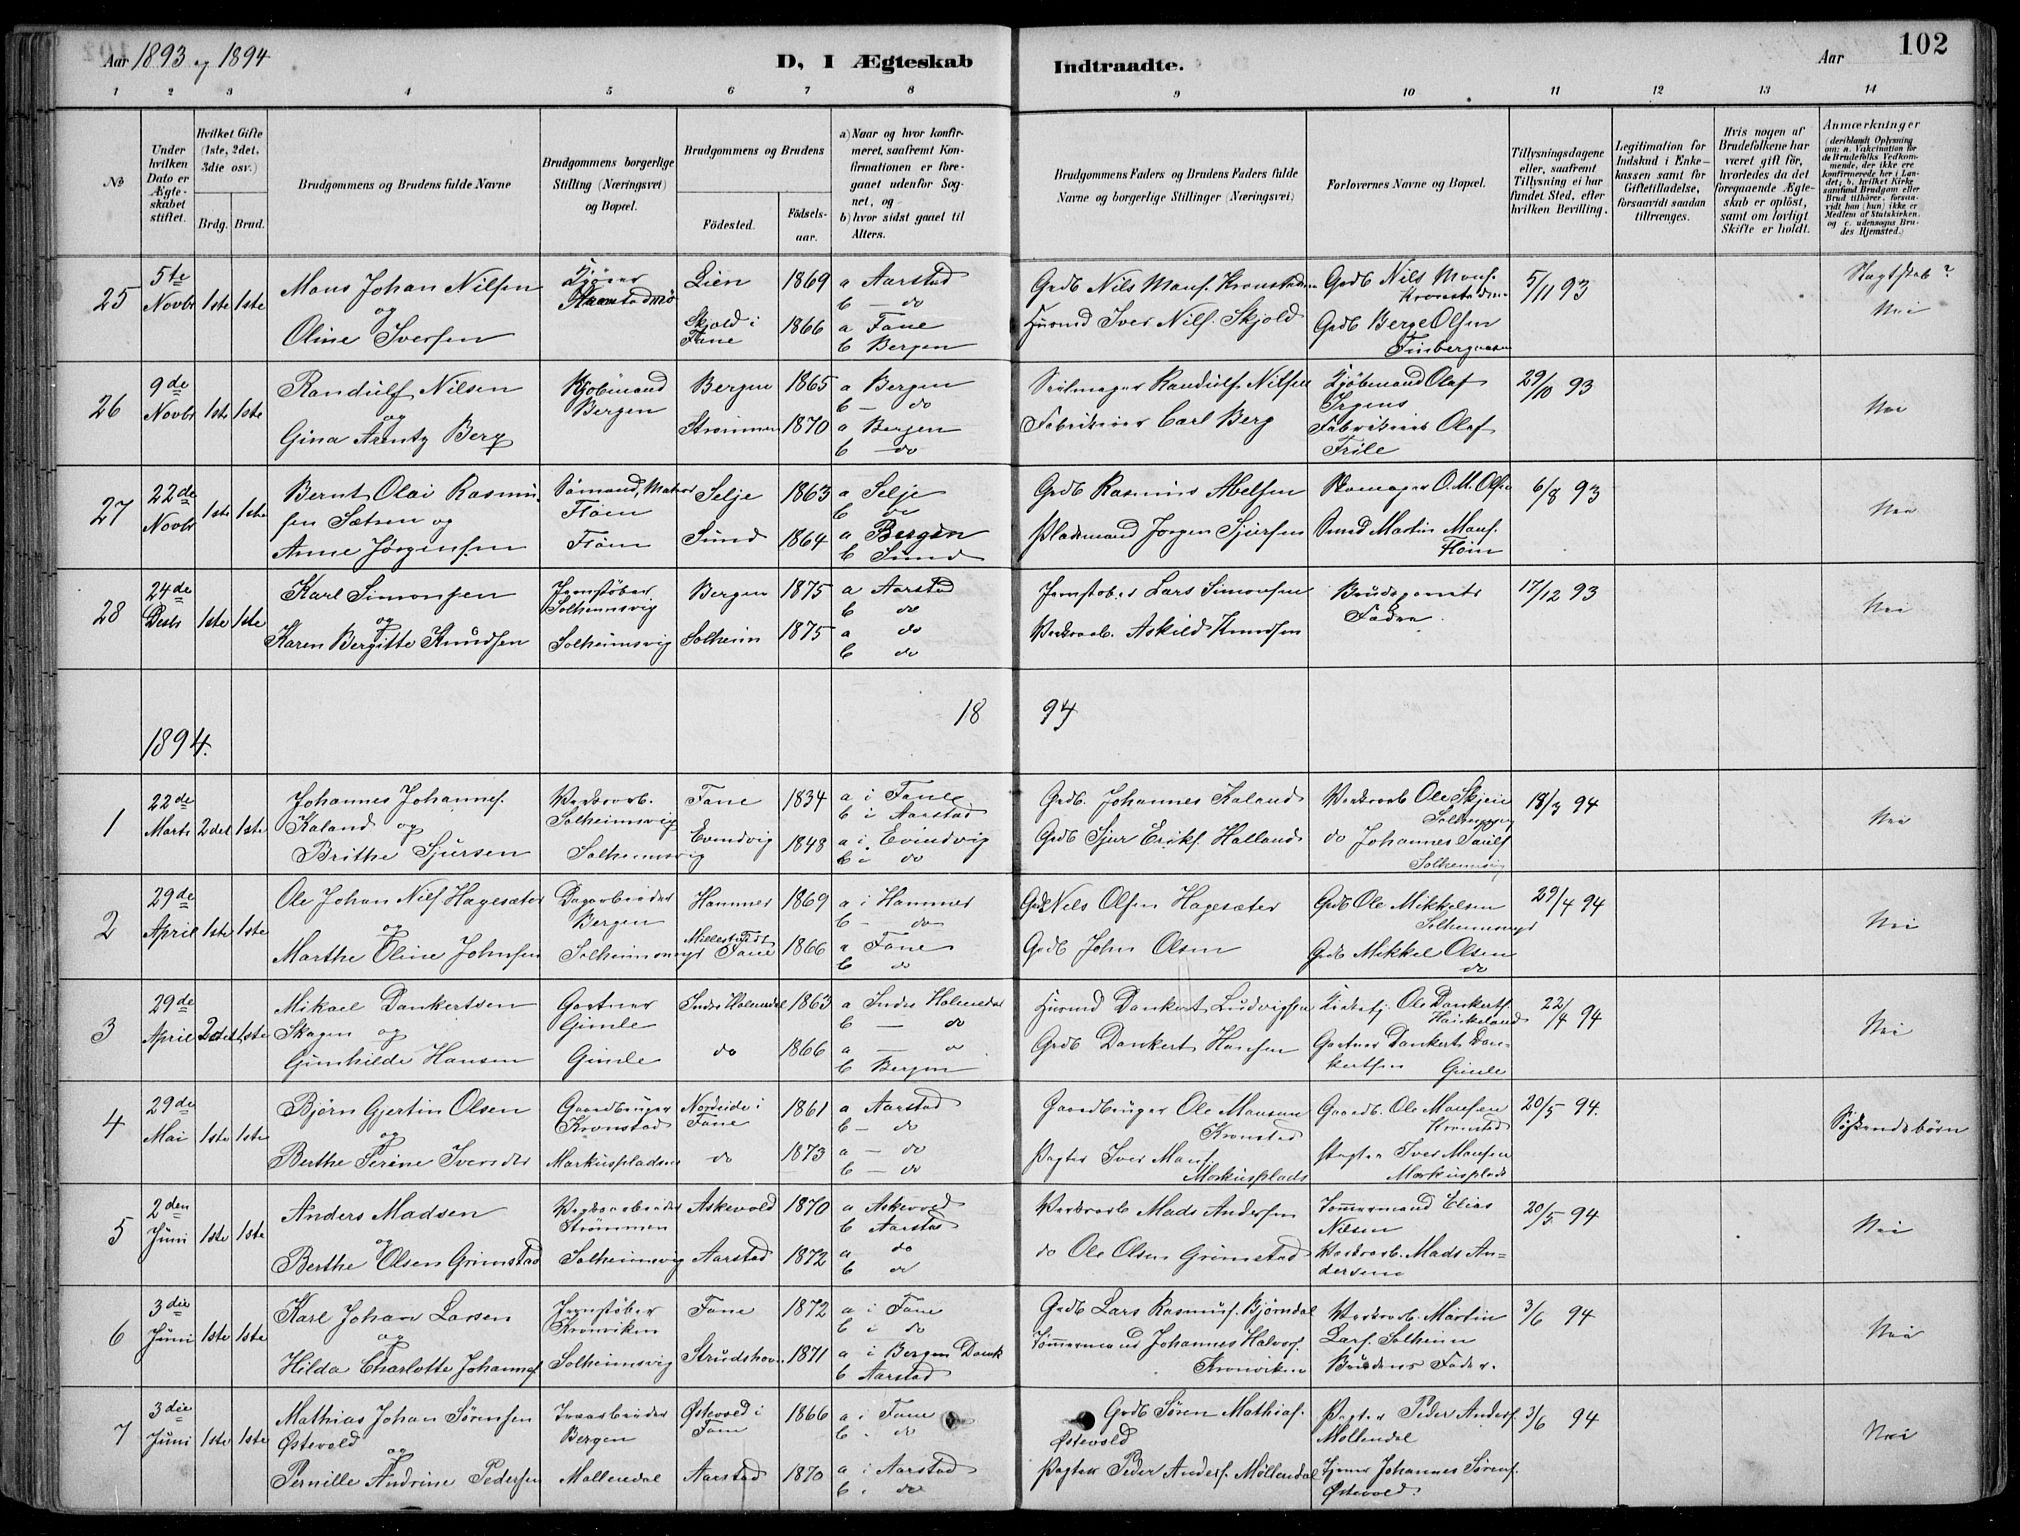 Aar 1893 og 1894
D, I Ægteskab
Indtraadte.
Aar
102
1 2 3 4 5 6 7 8 9 10 11 12 13 14
No
Under hvilken Dato er Ægteskabet stiftet.
Hvilket Gifte (1ste, 2det, 3die osv.)
Brdg. Brud.
Brudgommens og Brudens fulde Navne
Brudgommens borgerlige Stilling (Næringsvei) og Bopæl.
Brudgommens og Brudens
Födested.
Födsels-aar.
a) Naar og hvor konfirmeret, saafremt Konfirmationen er foregaaet udenfor Sognet, og
b) hvor sidst gaaet til Alters.
Brudgommens Faders og Brudens Faders fulde Navne og borgerlige Stillinger (Næringsvei)
Forlovernes Navne og Bopæl.
Tillysningsdagene eller, saafremt Tillysning ei har fundet Sted, efter hvilken Bevilling.
Legitimation for Indskud i Enkekassen samt for Giftetilladelse, forsaavidt saadan tiltrænges.
Hvis nogen af Brudefolkene har været gift för, hvorledes da det foregaaende Ægteskab er oplöst, samt om lovligt Skifte er holdt.
Anmærkninger (deriblandt Oplysning om: a. Vakcination for de Brudefolks Vedkommende, der ikke ere konfirmerede her i Landet; b. hvilket Kirkesamfund Brudgom eller Brud tilhörer, forsaavidt han (hun) ikke er Medlem af Statskirken, og c. udensogns Brudes Hjemsted.)
25 5te Novbr 1ste 1ste
Mons Johan Nilsen
og
Oline Iversen
Lien 1869 a Aarstad
b — do
Skjold i Fane 1866 a Fane
b Bergen
Grdb Nils Mons. Kronstad
Husmd Iver Nils. Skjold
Grdb Nils Mons.
Grdb Berge Olsen
5/11 93
Slagtskab?
Nei
26 9de Novbr 1ste 1ste
Randulf Nilsen
og
Gina Arentz Berg
Kjøbmand
Bergen
Bergen 1865 a Bergen
b — do
Strømmen 1870 a Bergen
b — do
Randulf Nilsen
Fabrikeier Carl Berg
Kjøbmand Olaf
Irgens
Fabrikeier Olaf
Friele
29/10 93
Nei
27 22de Novbr 1ste 1ste
Bernt Olai Rasmus-
sen Sætren og
Anne Jørgensen
Sømand,
Fløen
Selje 1863 a Selje
b do
Sund 1864 a Bergen
b Sund
Grdb Rasmus Abelsen
Pladsmand Jørgen Sjursen
Skomager O. M. Olsen
Martin Mons.
Fløen
6/8 93
Nei
28 24de Decbr 1ste 1ste
Karl Simonsen
og
Karen Bergitte Knudsen
Jernstøber
Solheimsvig
Solheimsvig
Bergen 1875 a Aarstad
b do
Solheim 1875 a do
b do
Jernstøber Lars Simonsen
Verksarb. Askild Knudsen
Brudeparrets
Fædre.
17/12 93
Nei
1894.
18 94
1 22de Marts 2det 1ste
Johannes Johannes.
Kaland og
Brithe Sjursen
Verksarb.
Solheimsvig
Solheimsvig
Fane 1834 a i Fane
b i Aarstad
Evindvig 1848 a i Evindvig
b i do
Grdb. Johannes Kaland
Grdb Sjur Eriks. Halland
Verksarb Ole Skjeie
do Johannes
Solheimsvig
18/3 94
Nei
2 29de April 1ste 1ste
Ole Johan Nils. Hagesæter
og
Marthe Oline Johnsen
Bergen
Solheimsvig
Hammer 1869 a i Hammer
b — do
Fane 1866 a Fane
b do
Grdb Nils Olsen Hagesæter
Grdb John Olsen
Grdb Ole Mikkelsen
Solheimsvig
Grdb Mikkel Olsen
do
29/4 94
Nei
3 29de April 2det 1ste
Mikael Dankertsen
Skagen og
Gunhilde Hansen
Gartner
Gimle
Gimle
Indre Holmedal 1863 a Indre Holmedal
b — do
do 1866 a — do
b Bergen
Husmd Dankert Ludvigsen
Grdb Dankert Hansen
Ole Dankerts.
Haukeland
Gartner Dankert Dan-
kertsen Gimle
22/4 94
Nei
4 29de Mai 1ste 1ste
Bjørn Gjertin Olsen
og
Berthe Serine Iversdtr
Gaardbruger
Kronstad
Markuspladsen
Nordeide i Fane 1861 a Aarstad
b — do
do 1873 a — do
b — do
Gaardbruger Ole Monsen
Kronstad
Pagter Iver Mons.
Markusplads
Gaardb. Ole Monsen
Kronstad
Pagter Iver Monsen
Markusplads
20/5 94.
Søskendebørn
5 2den Juni 1ste 1ste
Anders Madsen
og
Berthe Olsen Grimstad
Verksarbeider
Strømmen
Solheimsvig
Askevold 1870 a Askevold
b Aarstad
Aarstad 1872 a do
b do
Verksarb Mads Andersen
do Ole Olsen Grimstad
Tømmermand Elias
Næsen
Verksarb. Mads An-
dersen
20/5 94
Nei
6 3die Juni 1ste 1ste
Karl Johan Larsen
og
Hilda Charlotte Johannes.
Jernstøber
Kronviken
Solheimsvig
Fane 1872 a i Fane
b i do
Strudshavn 1871 a i Bergen Domk
b Aarstad
Grdb Lars Rasmus. Bjørndal
Tømmermand Johannes Halvors.
Kronviken
Verksarb. Martin
Lars. Solheim
Brudens Fader.
3/6 94
Nei
7 3die Juni 1ste 1ste
Mathias Johan Sørensen
Østevold og
Pernille Andrine Pedersen
Bergen
Møllendal
Østevold i Fane 1866 a i Fane
b i do
Aarstad 1870 a i Aarstad
b i do
Grdb Søren Mathias.
Østevold
Pagter Peder Anders. Møllendal
Pagter Peder Anders.
Møllendal
Johannes Sørens.
Østevold.
3/6 94
Nei